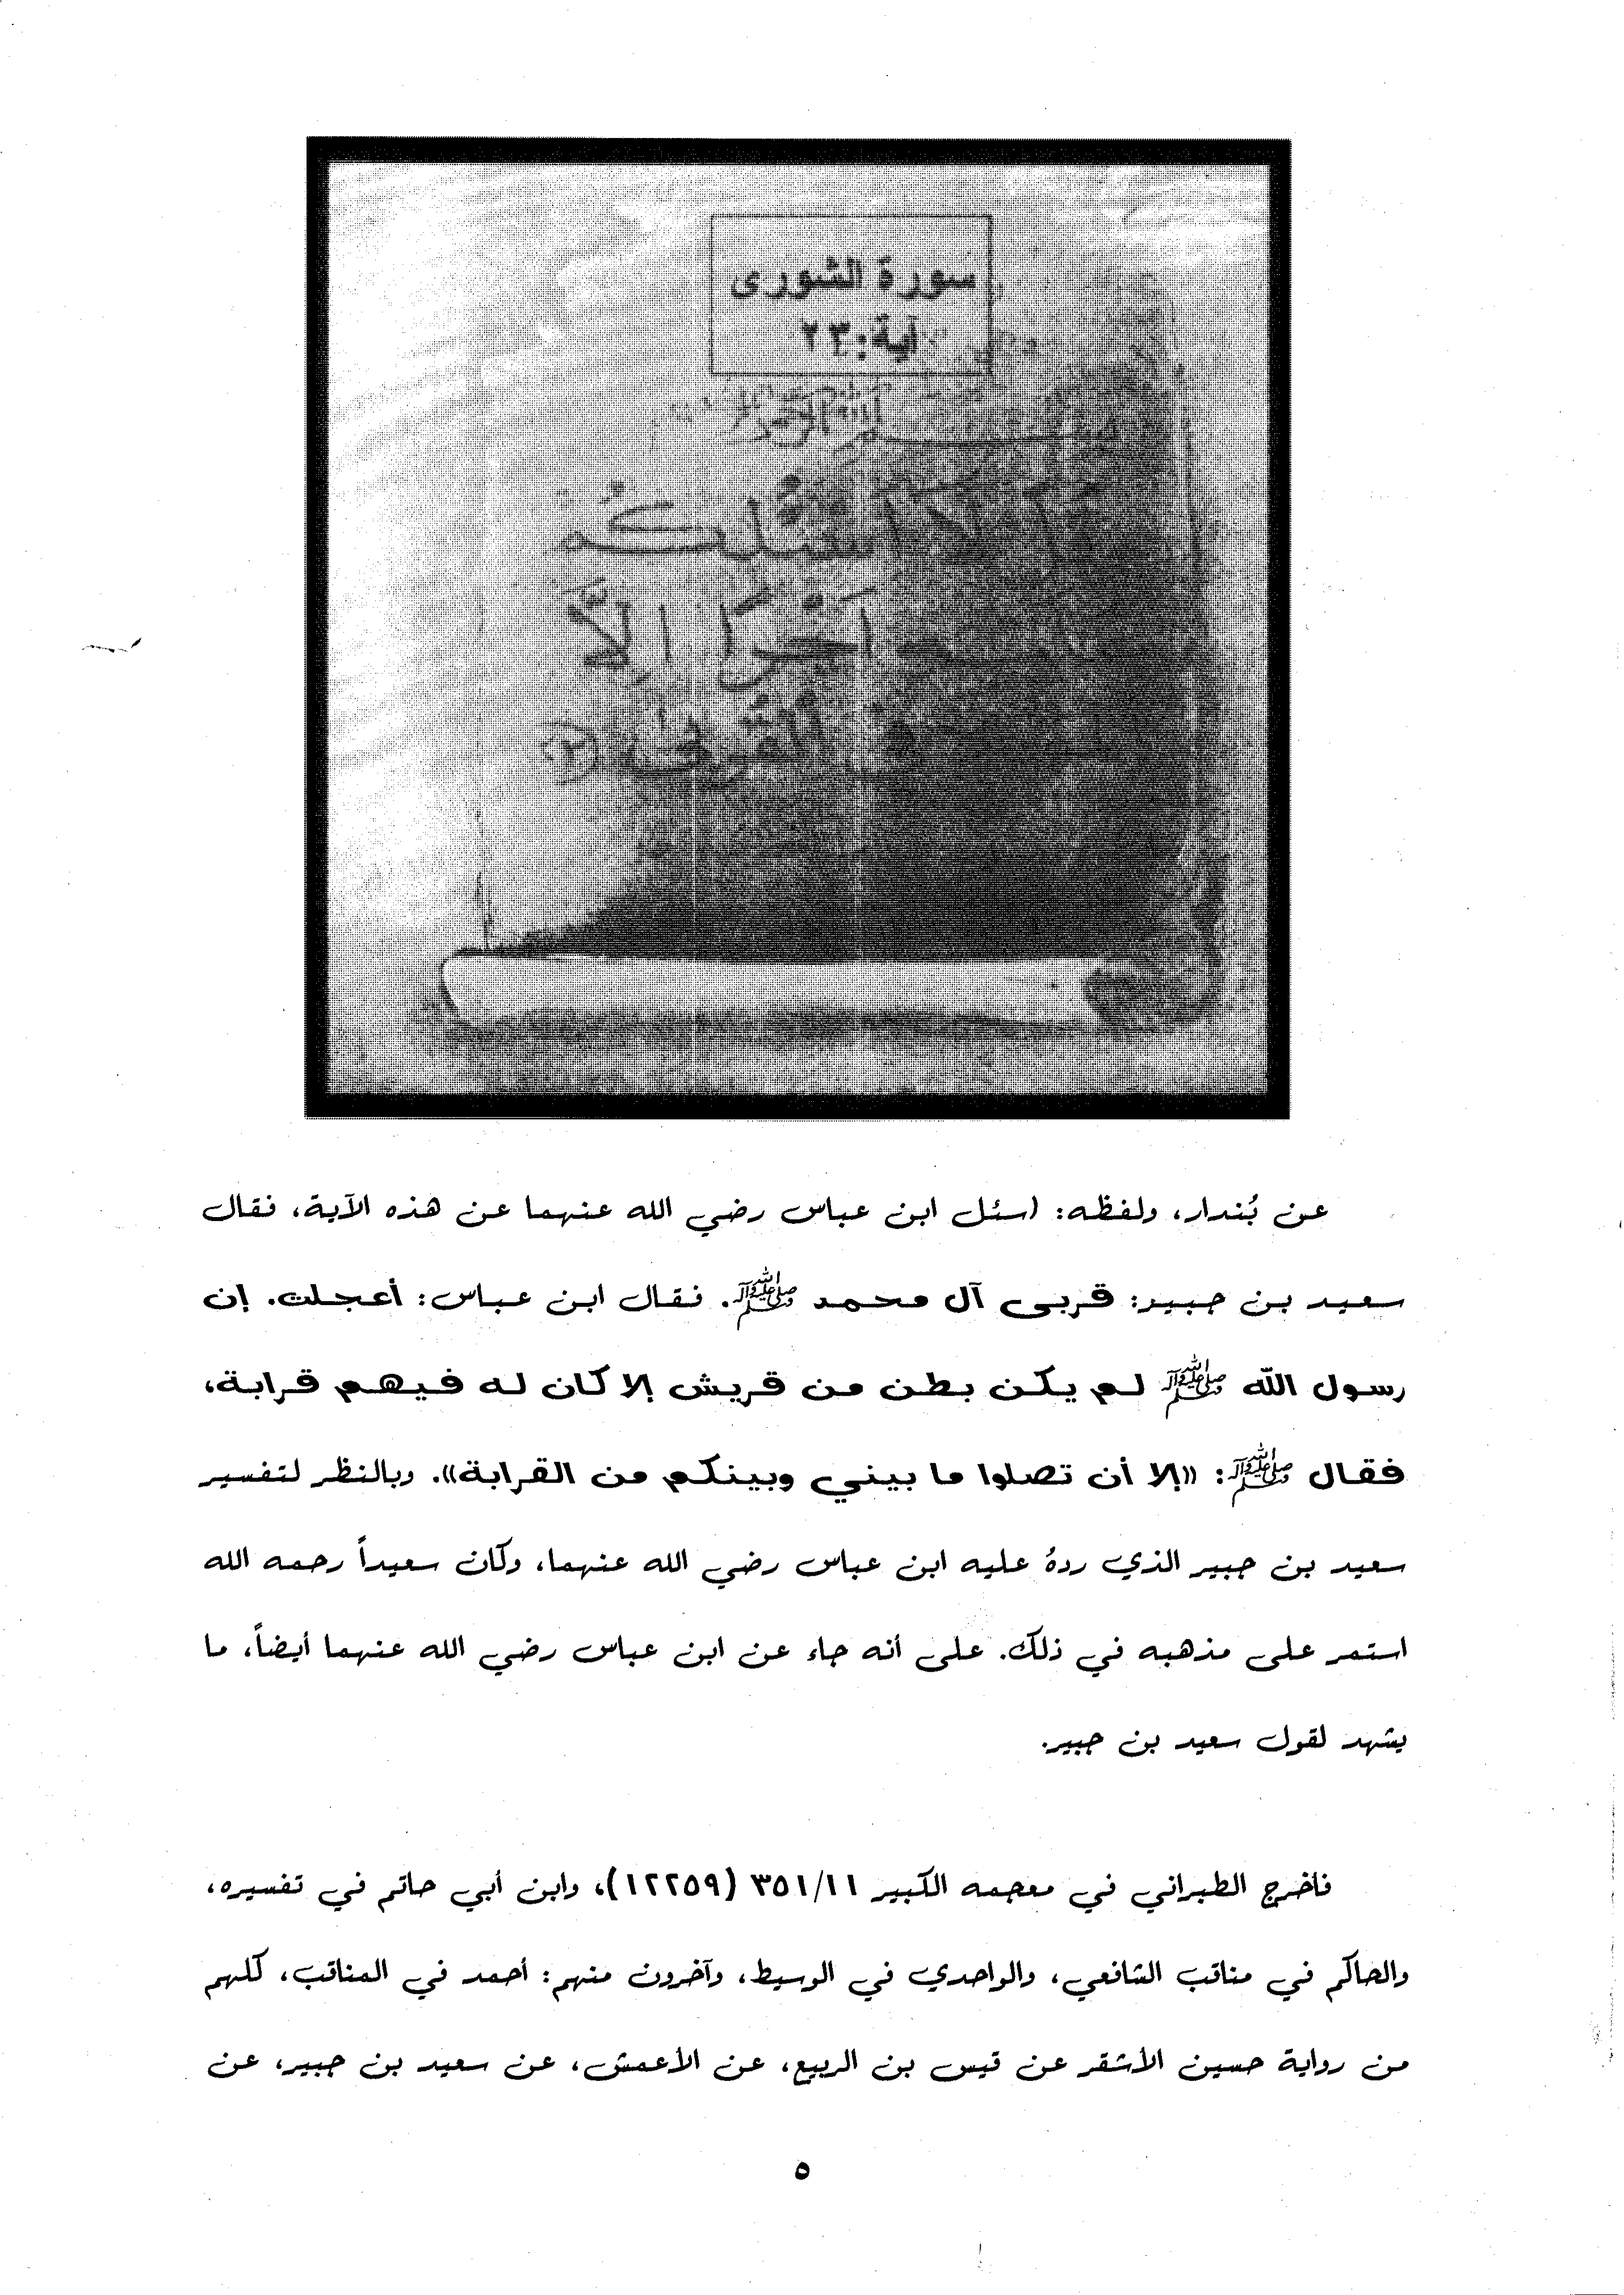 سورة الشورى
آية: ٢٣
اسئلكم
اجرا الا
القربى
عن بُندار، ولفظه: (سئل ابن عباس رضي الله عنهما عن هذه الآية، فقال
سعيد بن جبير: قربى آل محمد ﷺ. فقال ابن عباس: أعجلت. إن
رسول الله ﷺ لم يكن بطن من قريش إلا كان له فيهم قرابة،
فقال ﷺ: «إلا أن تصلوا ما بيني وبينكم من القرابة»). وبالنظر لتفسير
سعيد بن جبير الذي ردهُ عليه ابن عباس رضي الله عنهما، وكان سعيداً رحمه الله
استمر على مذهبه في ذلك. على أنه جاء عن ابن عباس رضي الله عنهما أيضاً، ما
يشهد لقول سعيد بن جبير.
فأخرج الطبراني في معجمه الكبير ٣٥١/١١ (١٢٢٥٩)، وابن أبي حاتم في تفسيره،
والحاكم في مناقب الشافعي، والواحدي في الوسيط، وآخرون منهم: أحمد في المناقب، كلهم
من رواية حسين الأشقر عن قيس بن الربيع، عن الأعمش، عن سعيد بن جبير، عن
٥